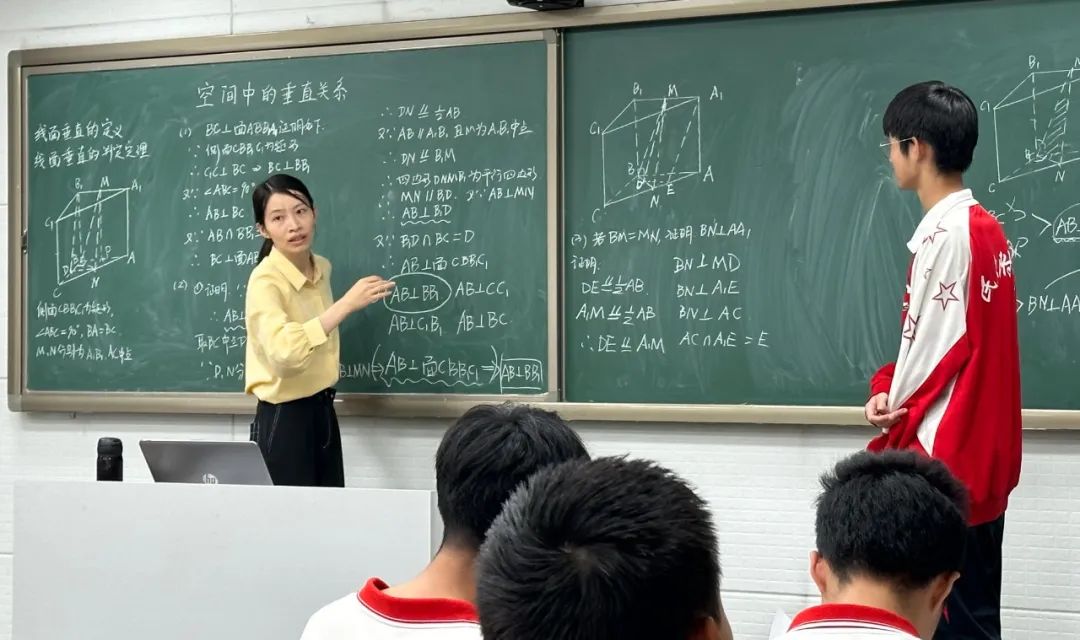 空间中的垂直关系
线面垂直的定义
线面垂直的判定定理
B₁ M A₁
C₁
A
C
N
侧面CBB₁C₁为矩形
∠ABC=90°, BA=BC
M,N分别为A₁B₁, AC中点
(1) BC⊥面ABB₁A₁证明如下.
∵ 侧面CBB₁C₁为矩形
∴ C₁C⊥BC ⇒ BC⊥BB₁
又∵ ∠ABC=90°
∴ AB⊥BC
又∵ AB∩BB₁=
∴ BC⊥面AB
(2) ①证明:
∴ AB⊥
取BC中点D
∵ D,N分
∴ DN ⫽ ½AB
又∵ AB∥A₁B₁ 且M为A₁B₁中点
∴ DN ⫽ B₁M
∴ 四边形DNMB₁为平行四边形
MN∥B₁D. 又∵AB⊥MN
∴ AB⊥B₁D
又∵ B₁D∩BC=D
∴ AB⊥面CBB₁C₁
AB⊥BB₁ AB⊥CC₁
AB⊥C₁B₁ AB⊥BC
AB⊥MN (AB⊥面CBB₁C₁) ⇒ AB⊥BB₁
B₁ M A₁
C₁
B
A
D N E
C
(3) 若BM=MN, 证明 BN⊥AA₁
证明:
DE⫽½AB.
A₁M⫽½AB
∴ DE⫽A₁M
BN⊥MD
BN⊥A₁E
BN⊥AC
AC∩A₁E=E
B₁ M
C₁
C
N
AB⊥
BN⊥AA₁
hp